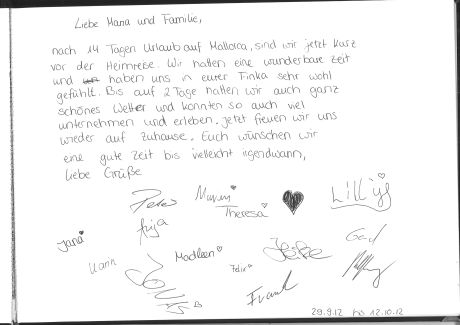 Liebe Maria und Familie,
nach 14 Tagen Urlaub auf Mallorca, sind wir jetzt kurz
vor der Heimreise. Wir hatten eine wunderbare Zeit
und haben uns in eurer Finka sehr wohl
gefühlt. Bis auf 2 Tage hatten wir auch ganz
schönes Wetter und konnten so auch viel
unternehmen und erleben. Jetzt freuen wir uns
wieder auf Zuhause. Euch wünschen wir
eine gute Zeit bis vielleicht irgendwann,
Liebe Grüße
Peter
Theresa
Lilly
Jana
Karin
Madleen
Felix
Heike
Gerd
Frank
29.9.12 bis 12.10.12